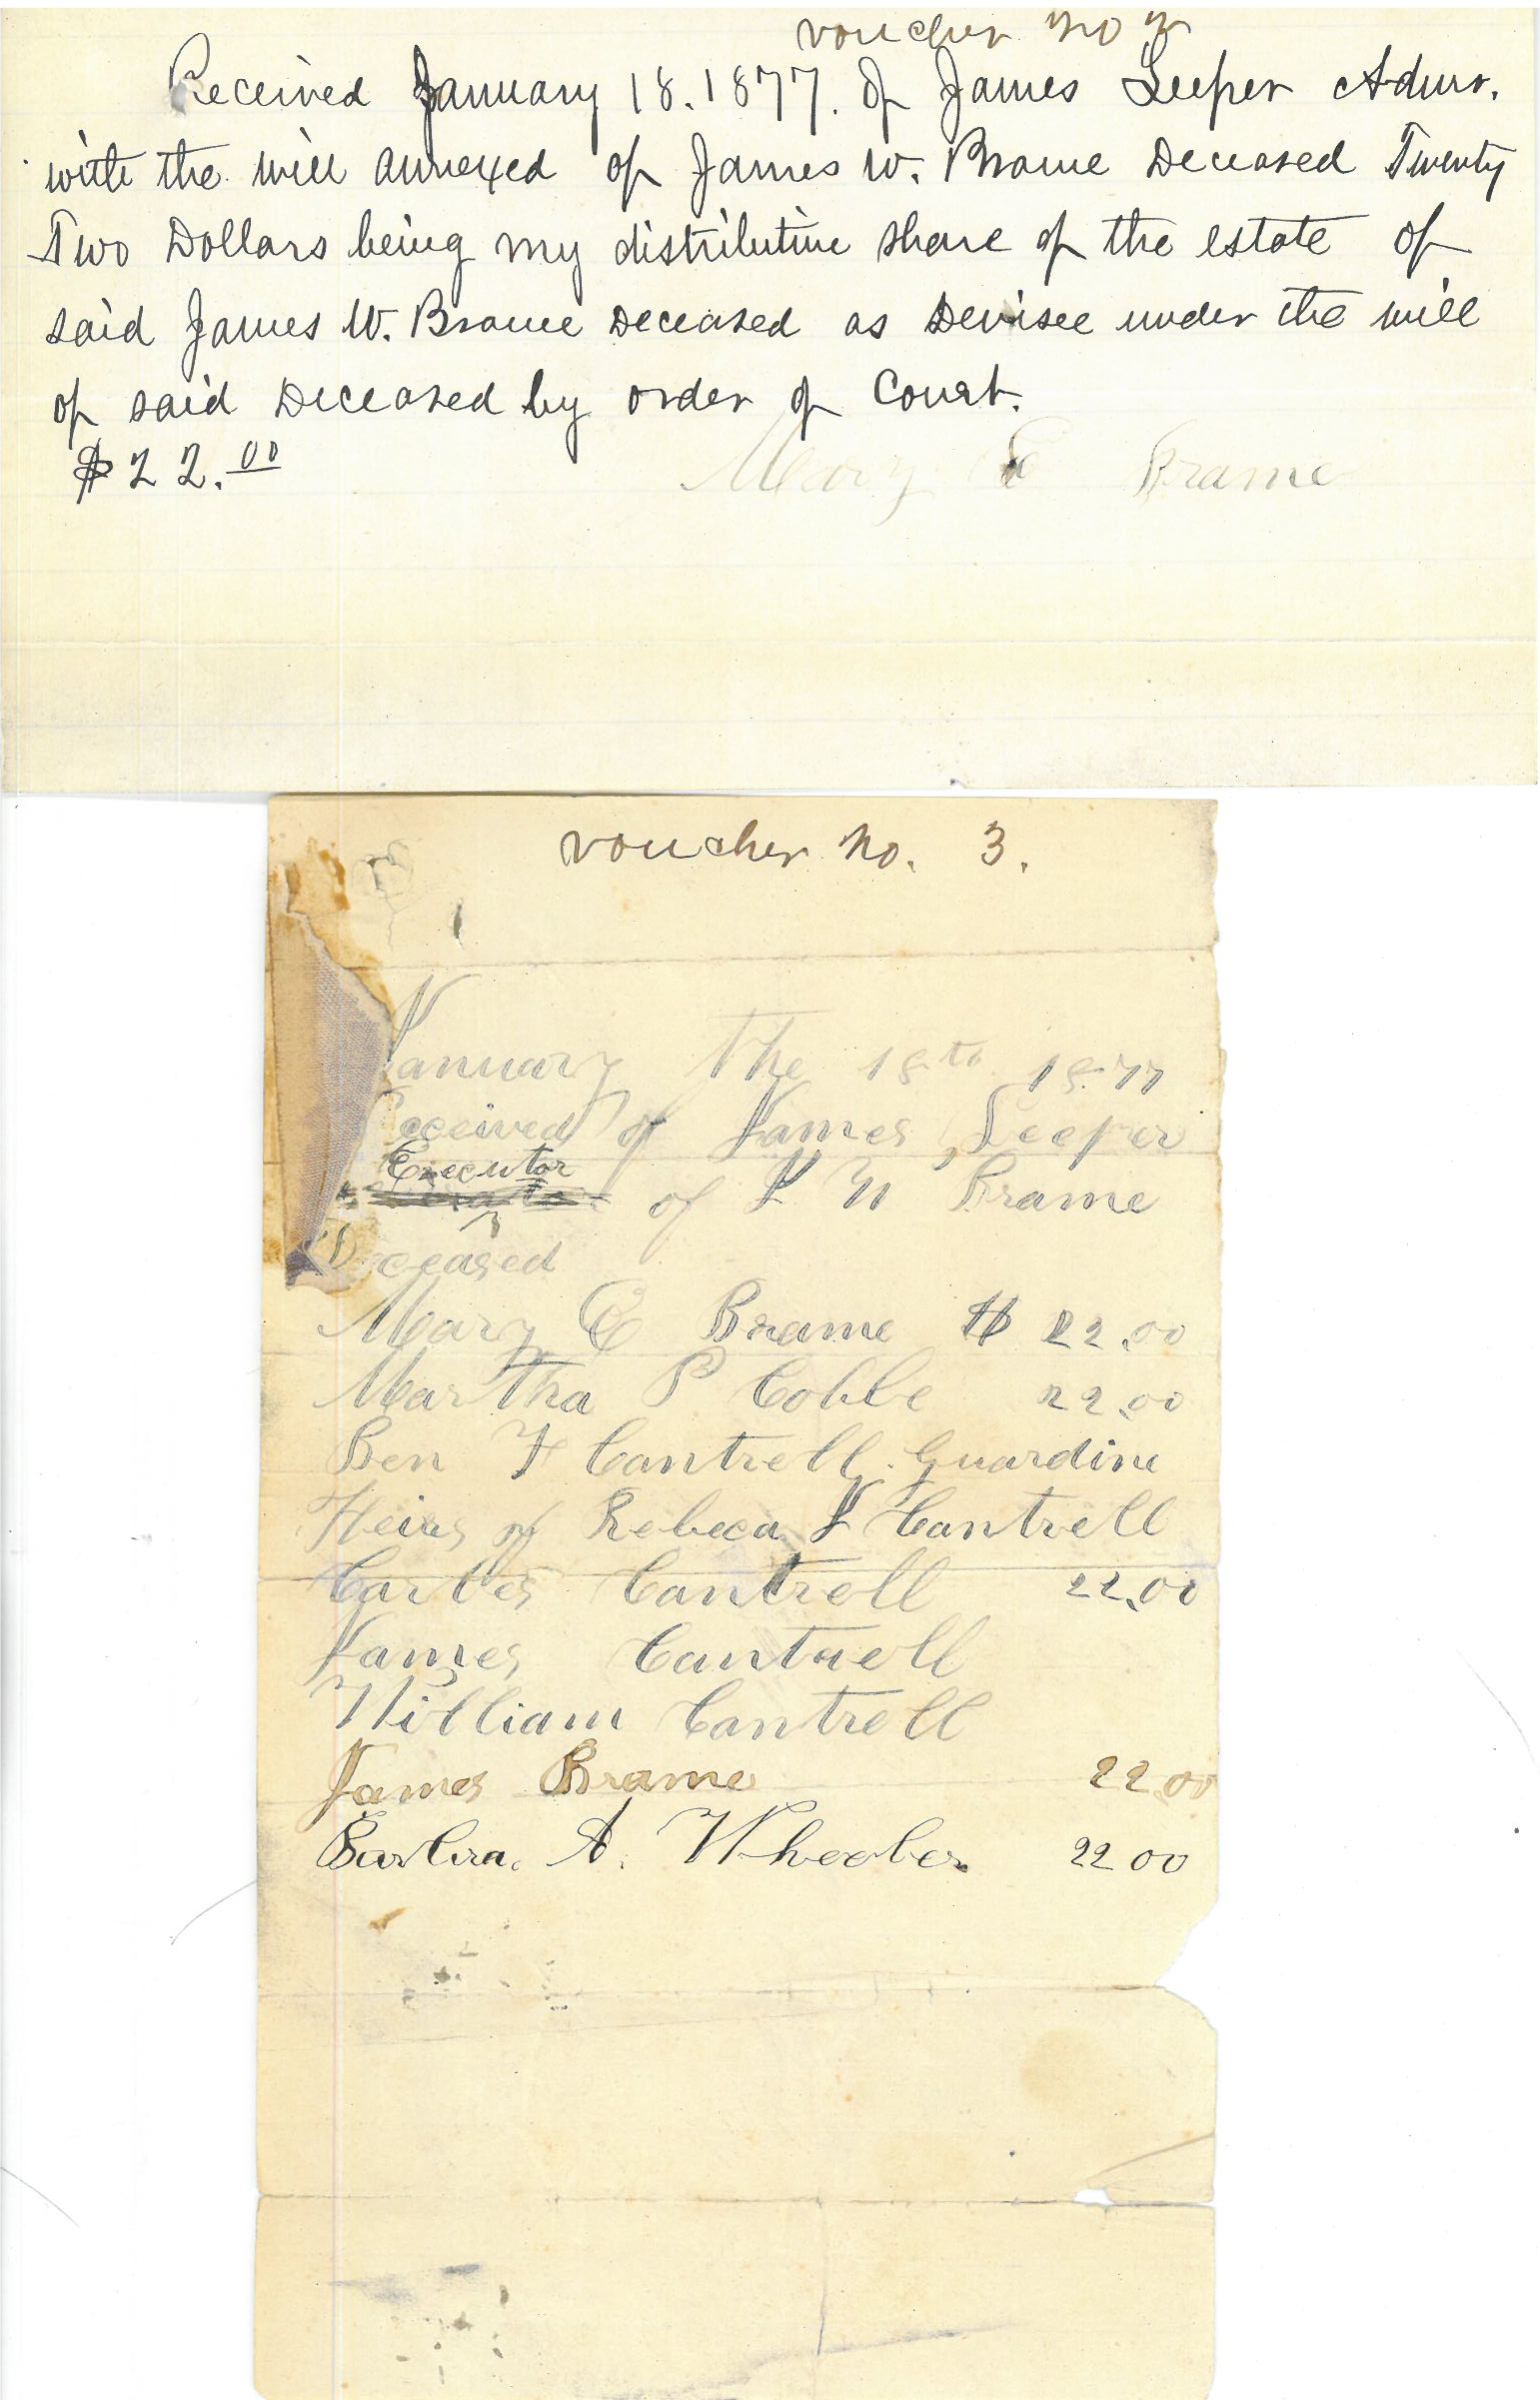 voucher no 2
Received January 18. 1877. of James Leeper Admr.
with the will annexed of James W. Brame Deceased Twenty
Two Dollars being my distributive share of the estate of
said James W. Brame Deceased as Devisee under the will
of said Deceased by order of Court.
$22.00
Mary E Brame
voucher no. 3.
January the 18th 1877
eceived of James Leeper
Executor
of J W Brame
Deceased
Mary E Brame $ 22.00
Martha P Cobbe 22.00
Ben F Cantrell Guardine
Heirs of Rebeca J Cantrell
Cantrell 22.00
James Cantrell
William Cantrell
James Brame 22.00
Barbra. A. Wheeler 22 00